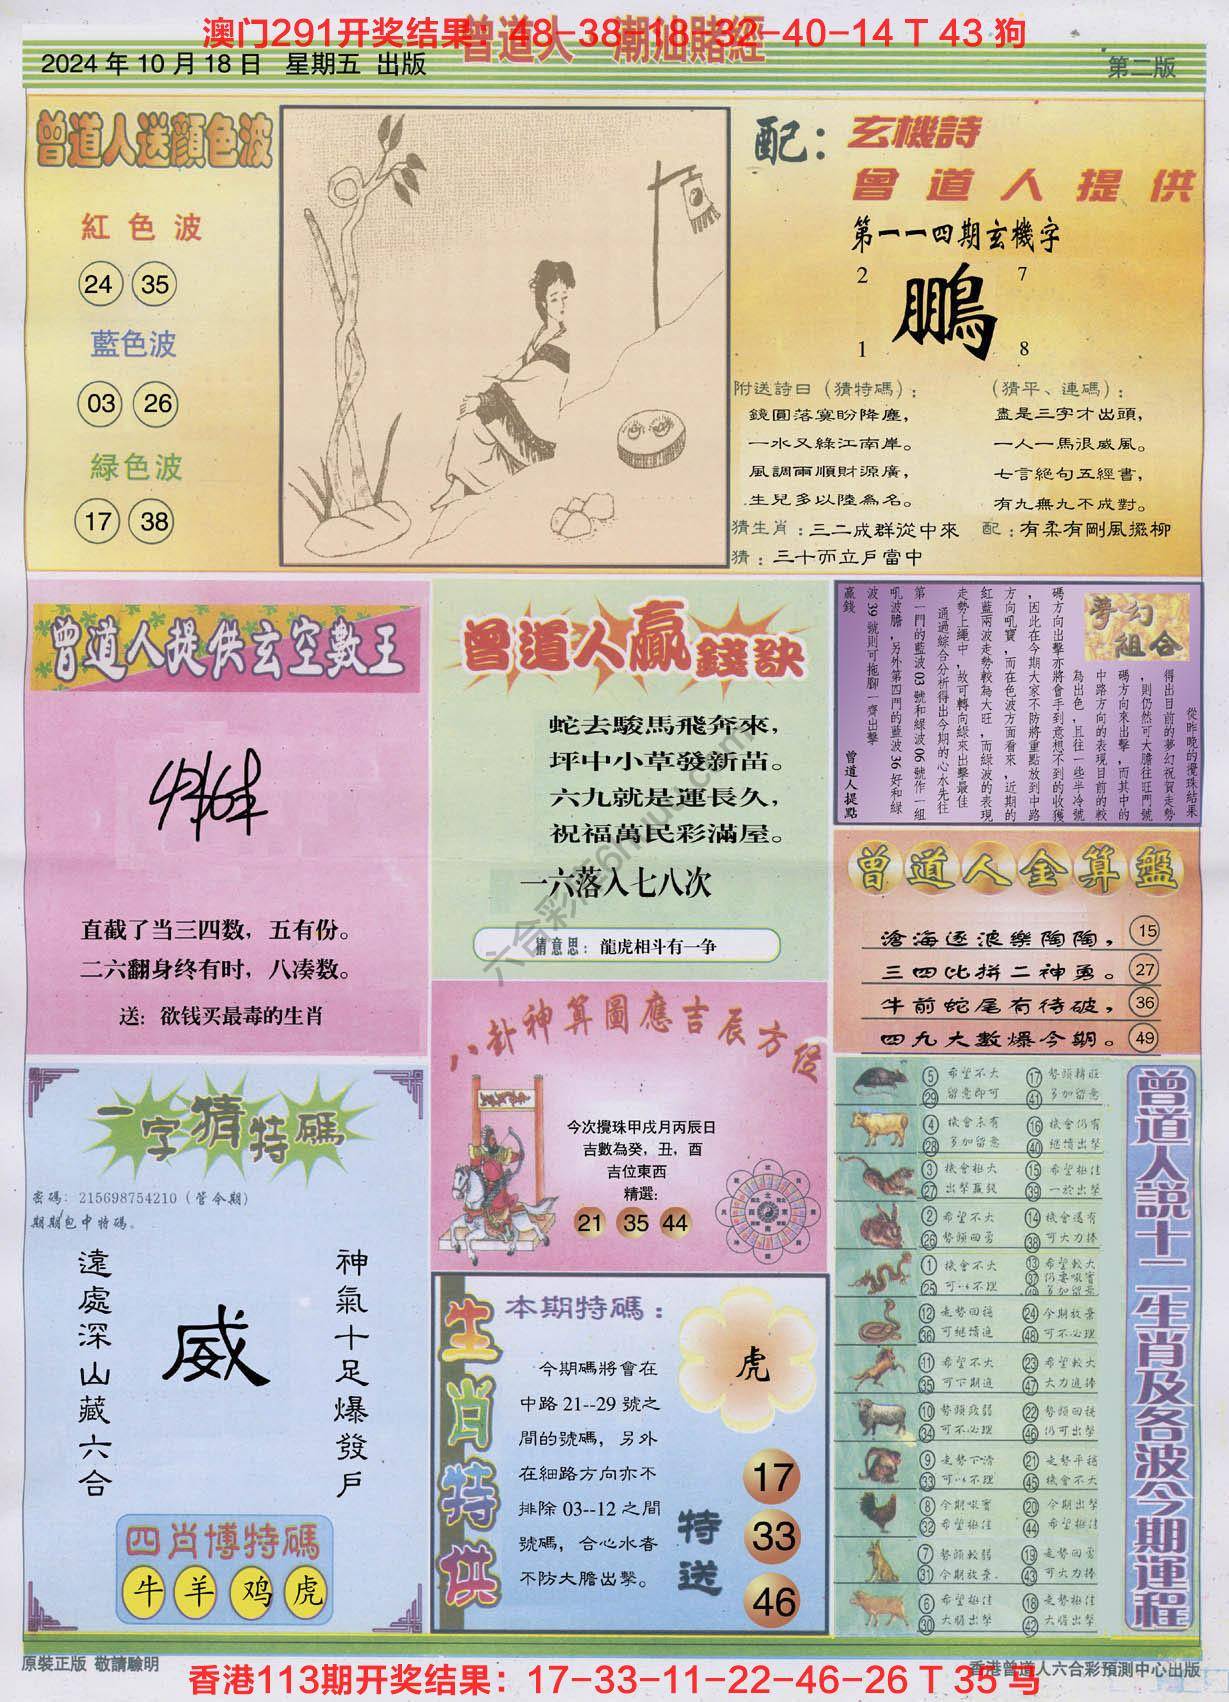 澳门291开奖结果：48-38-18-32-40-14 T 43 狗
曾道人 潮汕賭經
2024 年 10 月 18 日 星期五 出版
第二版
曾道人送顏色波
紅色波
24 35
藍色波
03 26
緑色波
17 38
配：玄機詩
曾道人提供
第一一四期玄機字
2 7
鵬
1 8
附送詩曰（猜特碼）：
鏡圓落寞盼降塵，
一水又綠江南岸。
風調雨順財源廣，
生兒多以陸為名。
（猜平、連碼）：
盡是三字才出頭，
一人一馬很威風。
七言絕句五經書，
有九無九不成對。
猜生肖：三二成群從中來
配：有柔有剛風擺柳
猜：三十而立戶當中
曾道人提供玄空數王
直截了当三四数，五有份。
二六翻身终有时，八凑数。
送：欲钱买最毒的生肖
曾道人贏錢訣
蛇去駿馬飛奔來，
坪中小草發新苗。
六九就是運長久，
祝福萬民彩滿屋。
一六落入七八次
猜意思：龍虎相斗有一争
夢幻組合
從昨晚的攪珠結果
得出目前的夢幻祝賀走勢
，則仍然可大膽往旺門號
碼方向來出擊，而其中的
中路方向的表現目前的較
為出色，且往一些半冷號
碼方向出擊亦將會手到意想不到的收獲
，因此在今期大家不防將重點放到中路
方向吼寶，而在色波方面看來，近期的
紅藍兩波走勢較為大旺，而綠波的表現
走勢上繩中，故可轉向綠來出擊最佳
通過綜合分析得出今期的心水先往
第一門的藍波 03 號和綠波 06 號作一組
吼波膽，另外第四門的藍波 36 好和綠
波 39 號則可拖腳一齊出擊
贏錢
曾道人提點
曾道人金算盤
滄海逐浪樂陶陶， 15
三四比拼二神勇。 27
牛前蛇尾有待破， 36
四九大數爆今期。 49
八卦神算圖應吉辰方位
今次攪珠甲戌月丙辰日
吉數為癸，丑，酉
吉位東西
精選：
21 35 44
一字猜特碼
密碼：215698754210（管今期）
期期包中特碼。
神氣十足爆發戶
威
遠處深山藏六合
四肖博特碼
牛 羊 鸡 虎
生肖特供
本期特碼：
虎
今期碼將會在
中路 21--29 號之
間的號碼，另外
在細路方向亦不
排除 03--12 之間
號碼，合心水者
不防大膽出擊。
特送
17
33
46
曾道人説十二生肖及各波今期運程
5 希望不大 17 勢頭精旺
29 留意即可 41 多加留意
4 機會未有 16 機會仍有
28 多加留意 40 繼續出擊
3 機會極大 15 希望極佳
27 出擊贏錢 39 一於出擊
2 希望不大 14 機會還有
26 勢頭回勇 38 可大力捧
1 機會不大 13 希望較大
25 可以不理 37
多加留意
12 走勢回穩 24 今期放棄
36 可繼續進 48 可不必理
11 希望不大 23 希望較大
35 可下期進 47 大力進捧
10 勢頭致弱 22 勢頭回穩
34 可不必理 46 仍可出擊
9 走勢下滑 21 走勢平穩
33 可以不理 45 機會不大
8 今期吼寶 20 今期出擊
32 希望極佳 44 希望極佳
7 勢頭較弱 19 走勢回勇
31 今期放棄. 43 可大力捧
6 希望極佳 18 走勢極佳
30 大膽出擊 42 大膽出擊
原裝正版 敬請驗明
香港曾道人六合彩預測中心出版
香港113期开奖结果：17-33-11-22-46-26 T 35 马